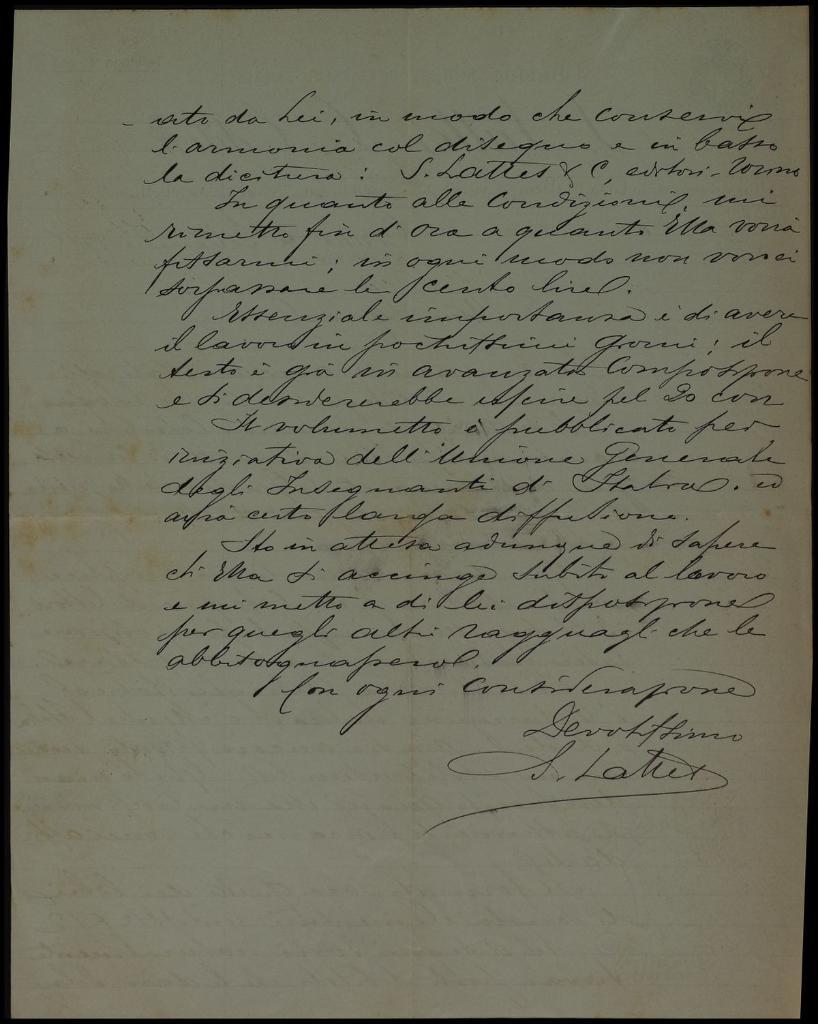 -ato da Lei, in modo che conservi
l'armonia col disegno e in basso
la dicitura: S. Lattes & C, editori - Torino
In quanto alle condizioni, mi
rimetto fin d'ora a quanto Ella vorrà
fissarmi; in ogni modo non vorrei
sorpassare le cento lire.
Essenziale importanza è di avere
il lavoro in pochissimi giorni; il
testo è già in avanzata composizione
e si desidererebbe uscire pel 20 corr
Il volumetto è pubblicato per
iniziativa dell'Unione Generale
degli Insegnanti d'Italia. ed
avrà certo larga diffusione.
Sto in attesa adunque di sapere
ch'Ella si accinge subito al lavoro
e mi metto a di lei disposizione
per quegli altri ragguagli che le
abbisognassero.
Con ogni considerazione
Devotissimo
S. Lattes